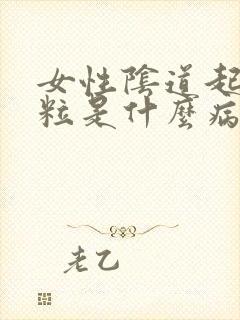 女性陰道起
粒是什麼病
老乙